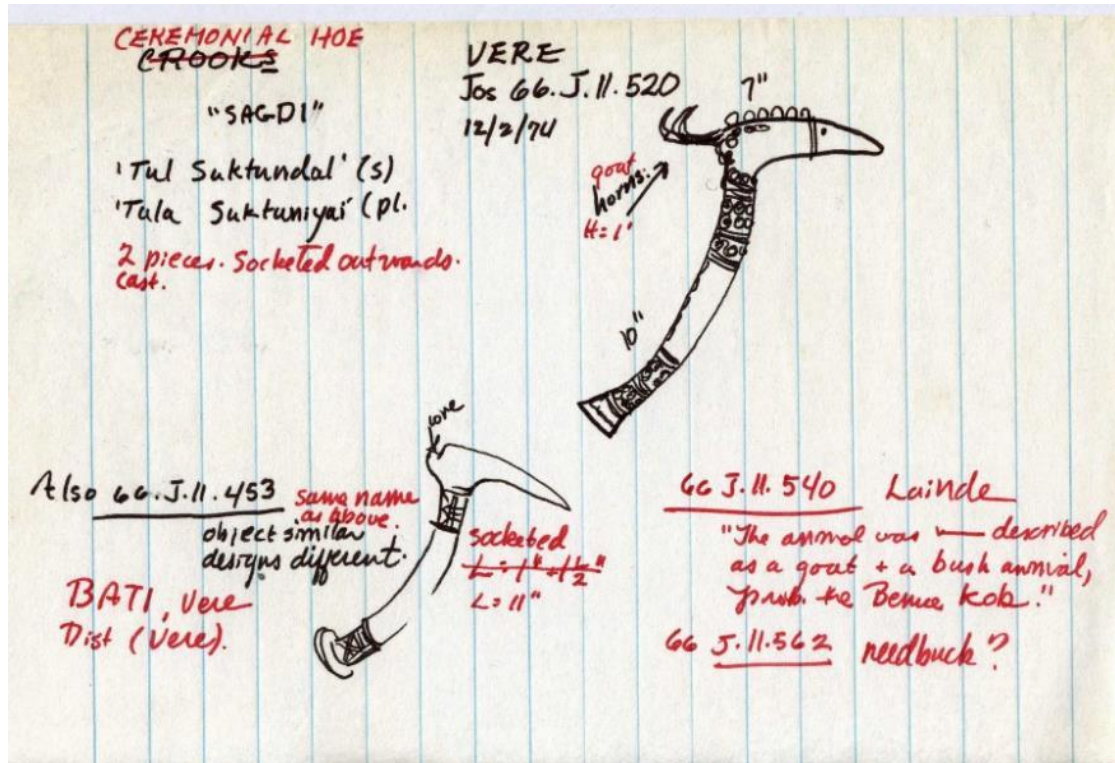 CEREMONIAL HOE
CROOKS
"SAGDI"
'Tul Suktundal' (s)
'Tula Suktuniyai' (pl.
2 pieces. Socketed outwards.
cast.
VERE
Jos 66.J.11.520
12/2/74
7"
goat
horns.
H=1"
10"
Also 66.J.11.453
same name
as above.
object similar
designs different.
BATI, Vere
Dist (Vere).
socketed
L = 1" - 1 1/2"
L = 11"
66 J.11.540 Lainde
"The animal was described
as a goat + a bush animal,
prob. the Benue kob."
66 J.11.562 reedbuck?